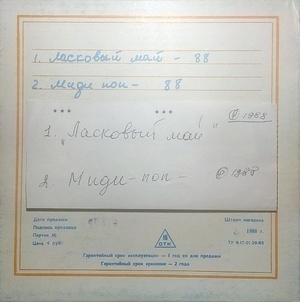 1. Ласковый май - 88
2. Миди поп - 88
***
***
1. "Ласковый май" ℗ 1988
2. Миди-поп - ℗ 1988
Дата продажи
Подпись продавца
Партия №
Цена 4 руб.
ОТК
Штамп магазина
1988 г.
Гарантийный срок эксплуатации — 1 год со дня продажи
Гарантийный срок хранения — 2 года